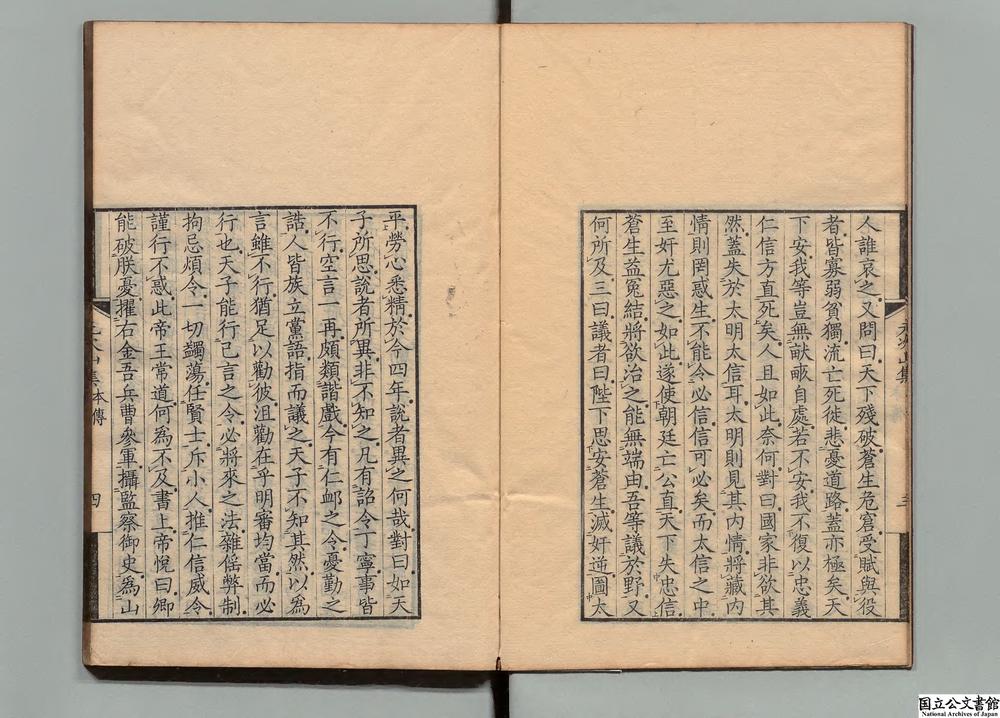 人誰哀之又問曰天下殘破蒼生危窘受賦與役
者皆寡弱貧獨流亡死徙悲憂道路蓋亦極矣天
下安我等豈無畎畝自處若不安我不復以忠義
仁信方直死矣人且如此奈何對曰國家非欲其
然蓋失於太明太信耳太明則見其內情將藏內
情則罔惑生不能令必信信可必矣而太信之中
至奸尤惡之如此遂使朝廷亡公直天下失忠信
蒼生益冤結將欲治之能無端由吾等議於野又
何所及三曰議者曰陛下思安蒼生滅奸逆圖太
平勞心悉精於今四年說者異之何哉對曰如天
子所思說者所異非不知之凡有詔令丁寧事皆
不行空言一再頗類諧戲今有仁卹之令憂勤之
誥人皆族立黨語指而議之天子不知其然以爲
言雖不行猶足以勸彼沮勸在乎明審均當而必
行也天子能行已言之令必將來之法雜徭弊制
拘忌煩令一切蠲蕩任賢士斥小人推仁信威令
謹行不惑此帝王常道何爲不及書上帝悅曰卿
能破朕憂擢右金吾兵曹參軍攝監察御史爲山
元次山集
本傳
四
国立公文書館
National Archives of Japan